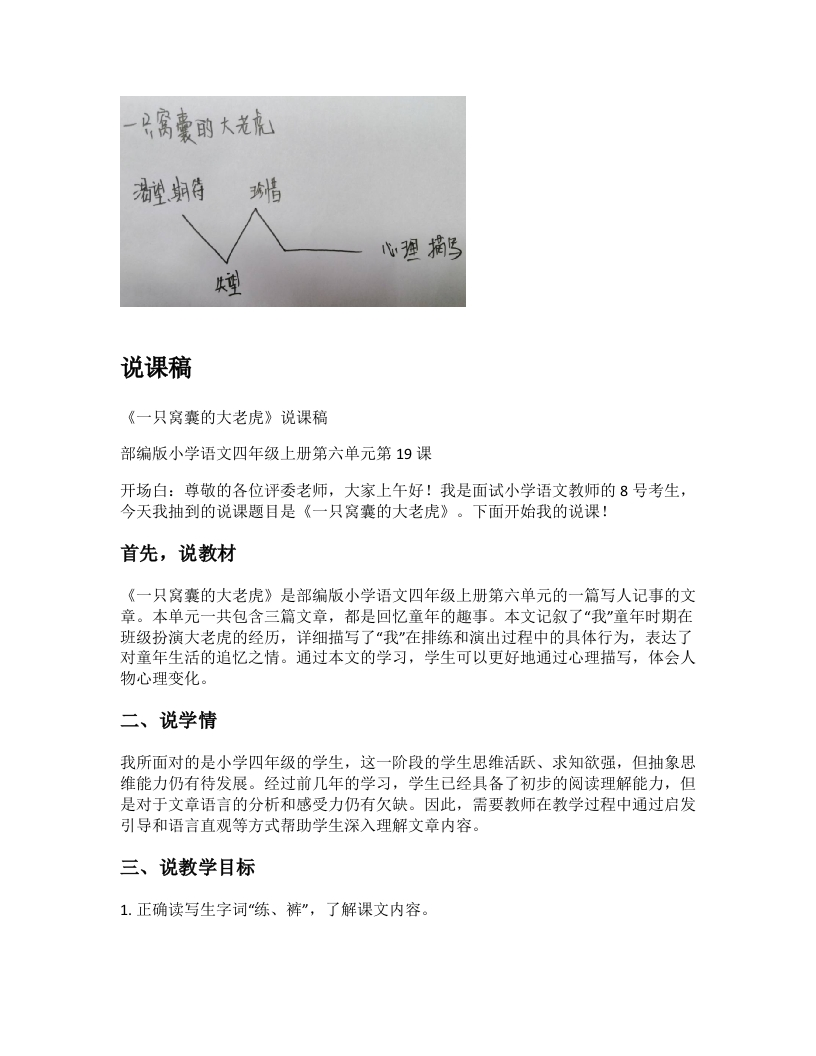 一只窝囊的大老虎
渴望、期待 珍惜
心理描写
失望
说课稿
《一只窝囊的大老虎》说课稿
部编版小学语文四年级上册第六单元第 19 课
开场白：尊敬的各位评委老师，大家上午好！我是面试小学语文教师的 8 号考生，
今天我抽到的说课题目是《一只窝囊的大老虎》。下面开始我的说课！
首先，说教材
《一只窝囊的大老虎》是部编版小学语文四年级上册第六单元的一篇写人记事的文
章。本单元一共包含三篇文章，都是回忆童年的趣事。本文记叙了“我”童年时期在
班级扮演大老虎的经历，详细描写了“我”在排练和演出过程中的具体行为，表达了
对童年生活的追忆之情。通过本文的学习，学生可以更好地通过心理描写，体会人
物心理变化。
二、说学情
我所面对的是小学四年级的学生，这一阶段的学生思维活跃、求知欲强，但抽象思
维能力仍有待发展。经过前几年的学习，学生已经具备了初步的阅读理解能力，但
是对于文章语言的分析和感受力仍有欠缺。因此，需要教师在教学过程中通过启发
引导和语言直观等方式帮助学生深入理解文章内容。
三、说教学目标
1. 正确读写生字词“练、裤”，了解课文内容。